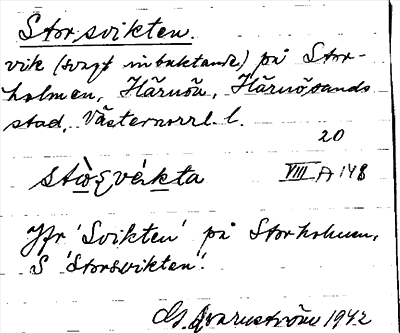 Storsvikten.
vik (svagt inbuktande) på Stor-
holmen, Härnön, Härnösands
stad, Västernorrl. l.
20
VIII A 148
Jfr 'Svikten' på Storholmen,
S 'Storsvikten'.
1942